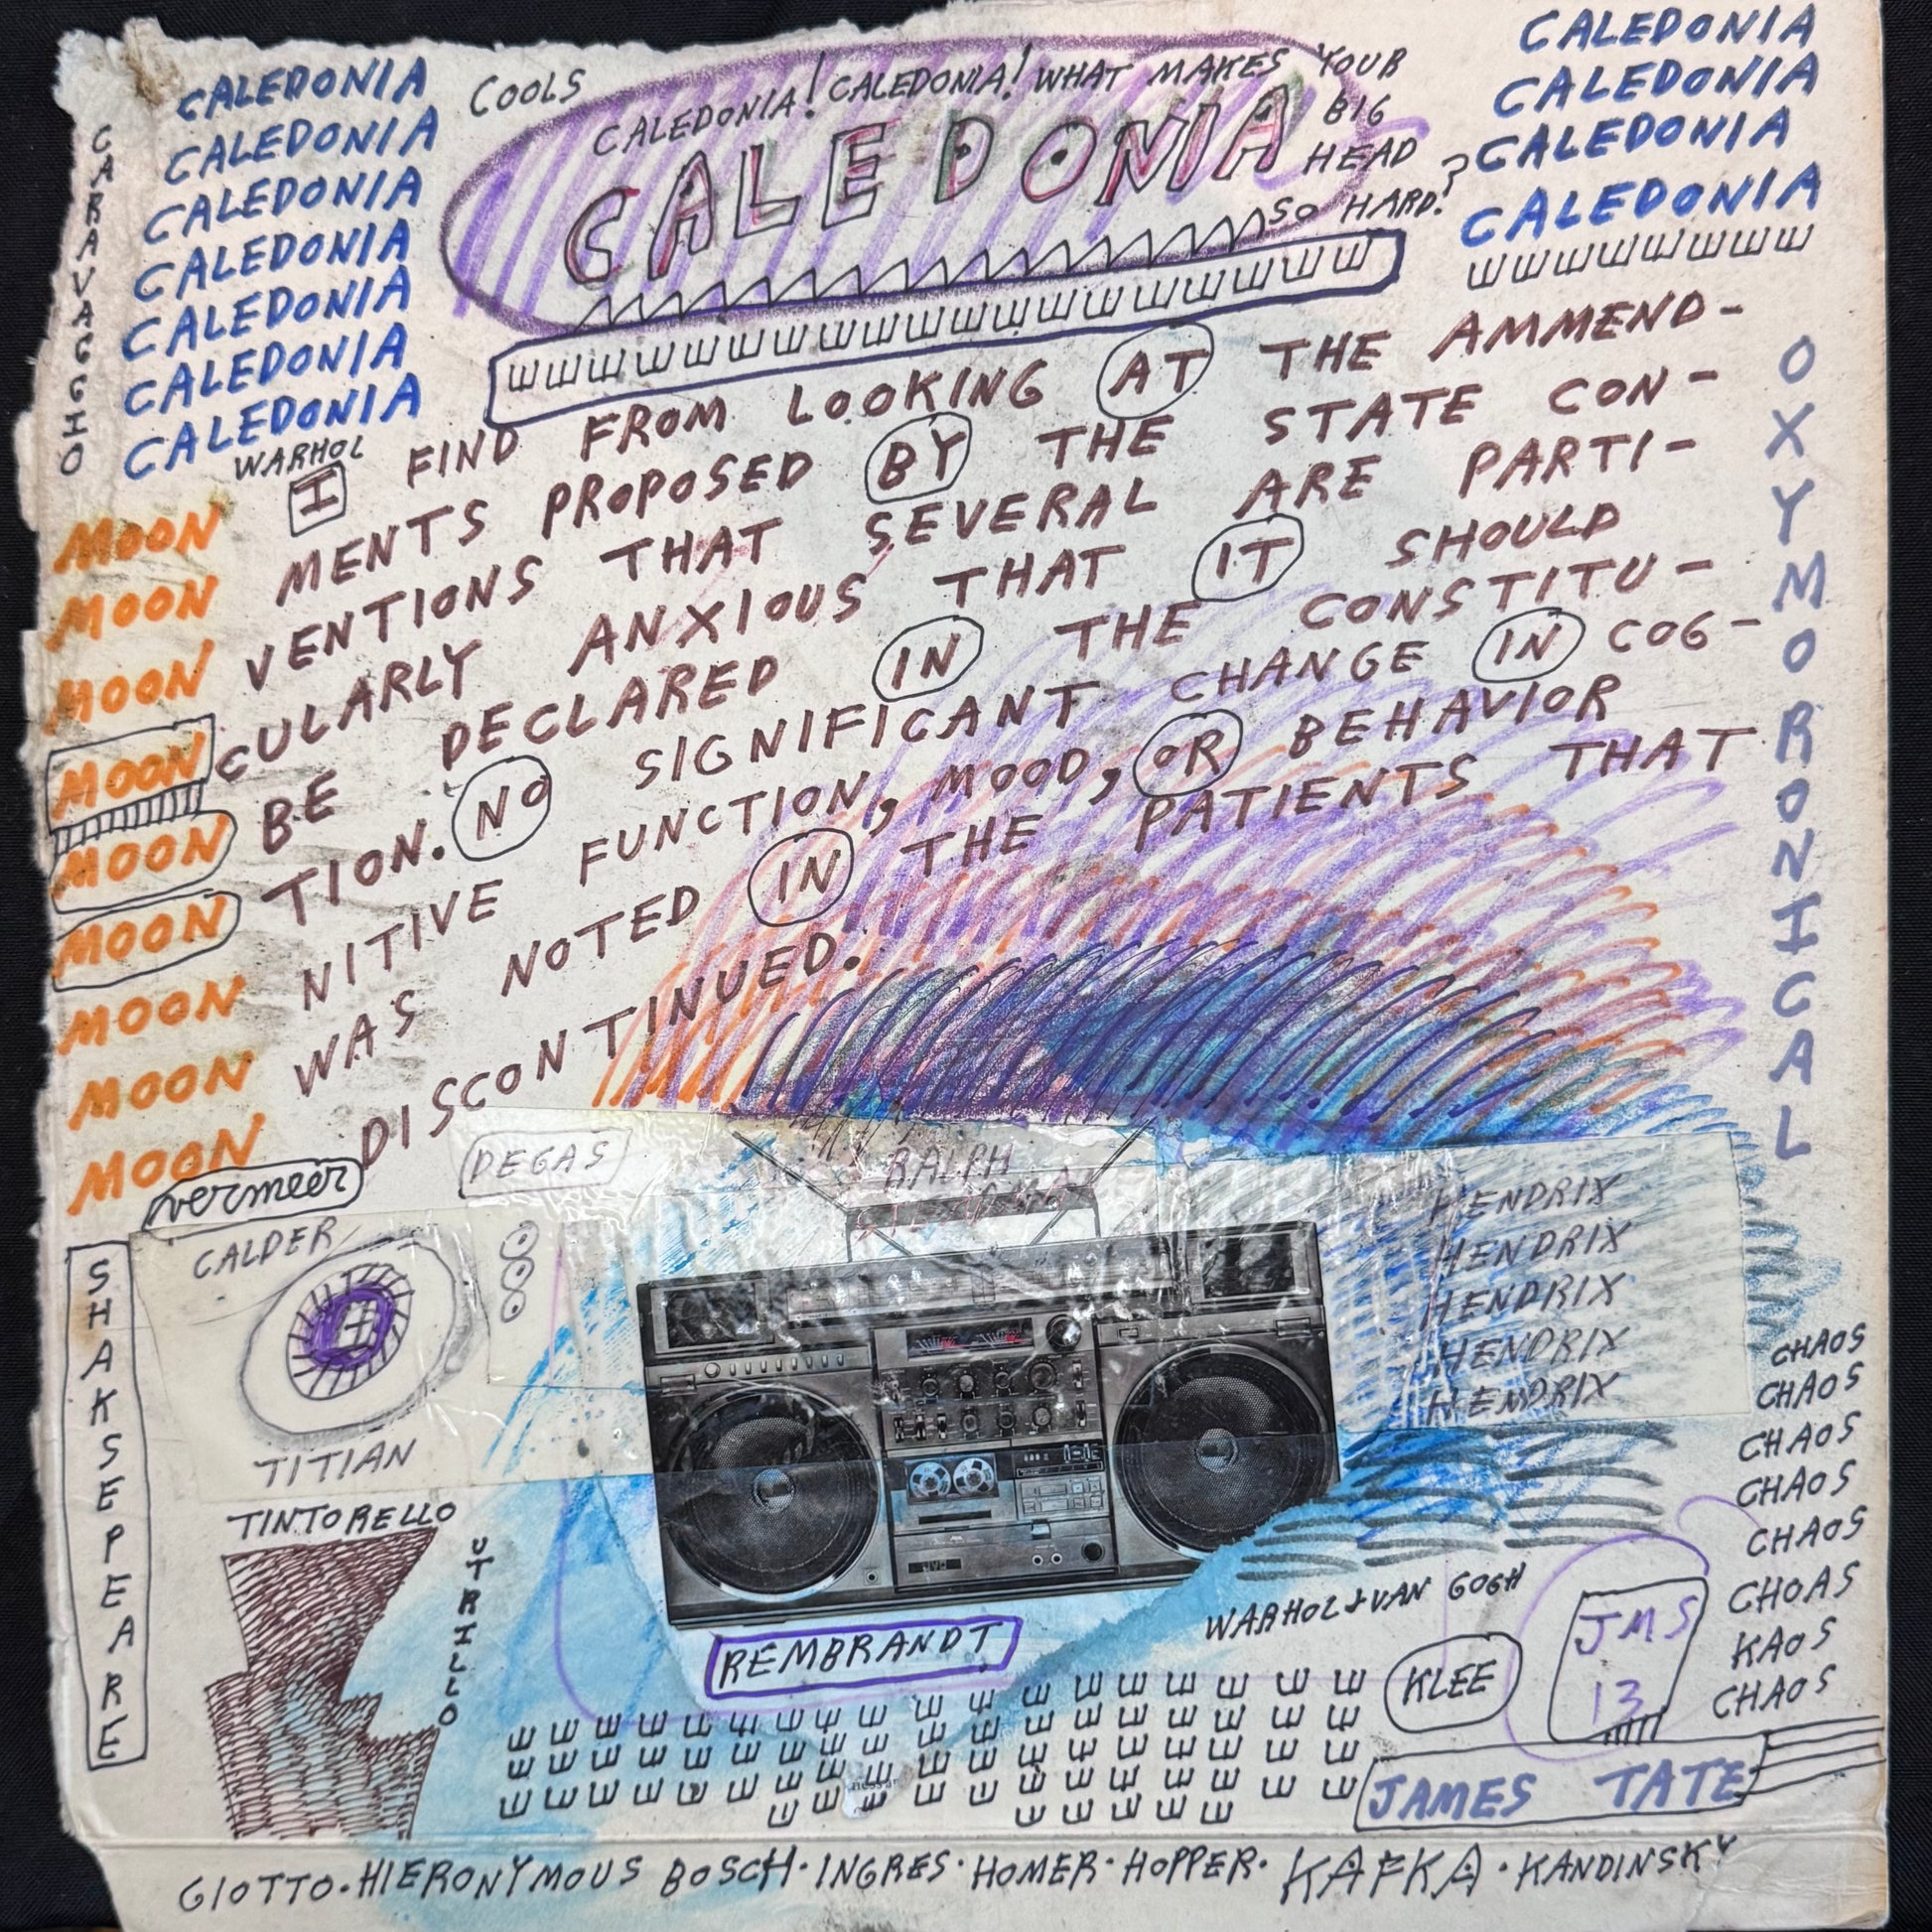 CALEDONIA
CALEDONIA
CALEDONIA
CALEDONIA
CALEDONIA
CALEDONIA
CALEDONIA
CARAVAGGIO
WARHOL
COOLS
CALEDONIA! CALEDONIA! WHAT MAKES YOUR
BIG
HEAD
SO HARD?
CALEDONIA
CALEDONIA
CALEDONIA
CALEDONIA
CALEDONIA
I FIND FROM LOOKING AT THE AMMEND-
MENTS PROPOSED BY THE STATE CON-
VENTIONS THAT SEVERAL ARE PARTI-
CULARLY ANXIOUS THAT IT SHOULD
BE DECLARED IN THE CONSTITU-
TION. NO SIGNIFICANT CHANGE IN COG-
NITIVE FUNCTION, MOOD, OR BEHAVIOR
WAS NOTED IN THE PATIENTS THAT
DISCONTINUED.
MOON
MOON
MOON
MOON
MOON
MOON
MOON
MOON
MOON
OXYMORONICAL
vermeer
DEGAS
RALPH
CALDER
TITIAN
TINTORELLO
SHAKSEPEARE
UTRILLO
HENDRIX
HENDRIX
HENDRIX
HENDRIX
HENDRIX
JVC
REMBRANDT
WARHOL & VAN GOGH
KLEE
JMS
13
CHAOS
CHAOS
CHAOS
CHAOS
CHAOS
CHOAS
KAOS
CHAOS
JAMES TATE
GIOTTO · HIERONYMOUS BOSCH · INGRES · HOMER · HOPPER · KAFKA · KANDINSKY